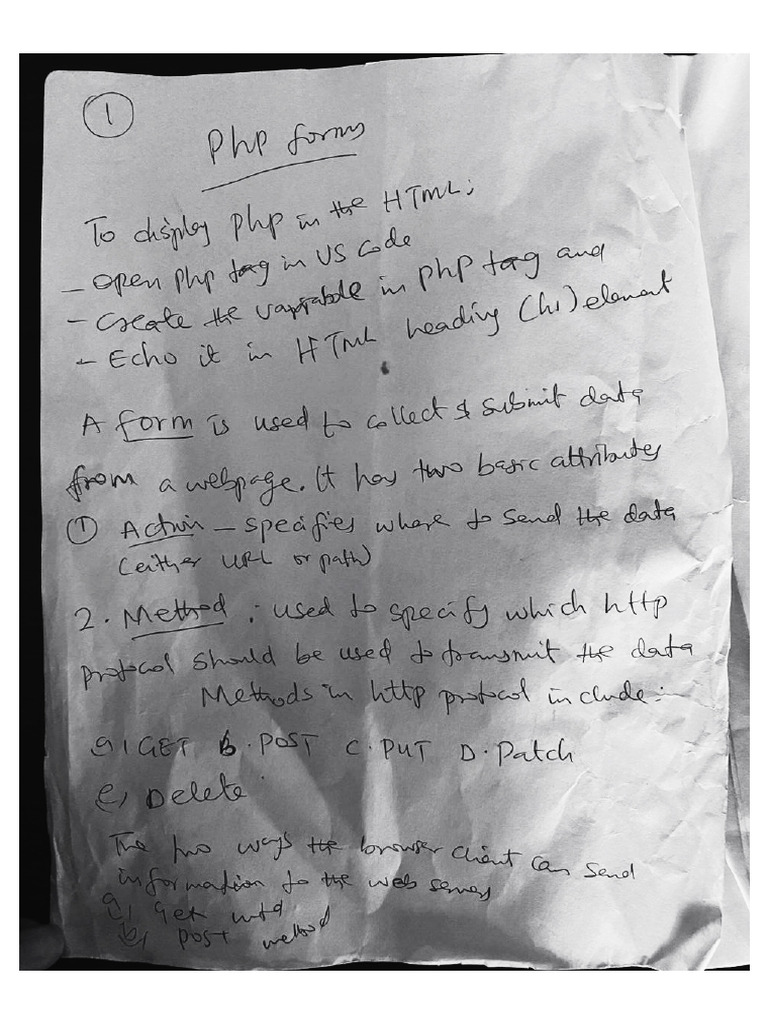 1
Php forms
To display php in the HTML;
- Open php tag in VS code
- Create the variable in php tag and
- Echo it in HTML heading (h1) element
A form is used to collect & submit data
from a webpage. It has two basic attributes
① Action - specifies where to send the data
(either URL or path)
2. Method : used to specify which http
protocol should be used to transmit the data
Methods in http protocol include:-
a, GET b. POST C. PUT D. Patch
e, Delete
The two ways the browser client can send
information to the web server
a, Get mtd
b, POST method